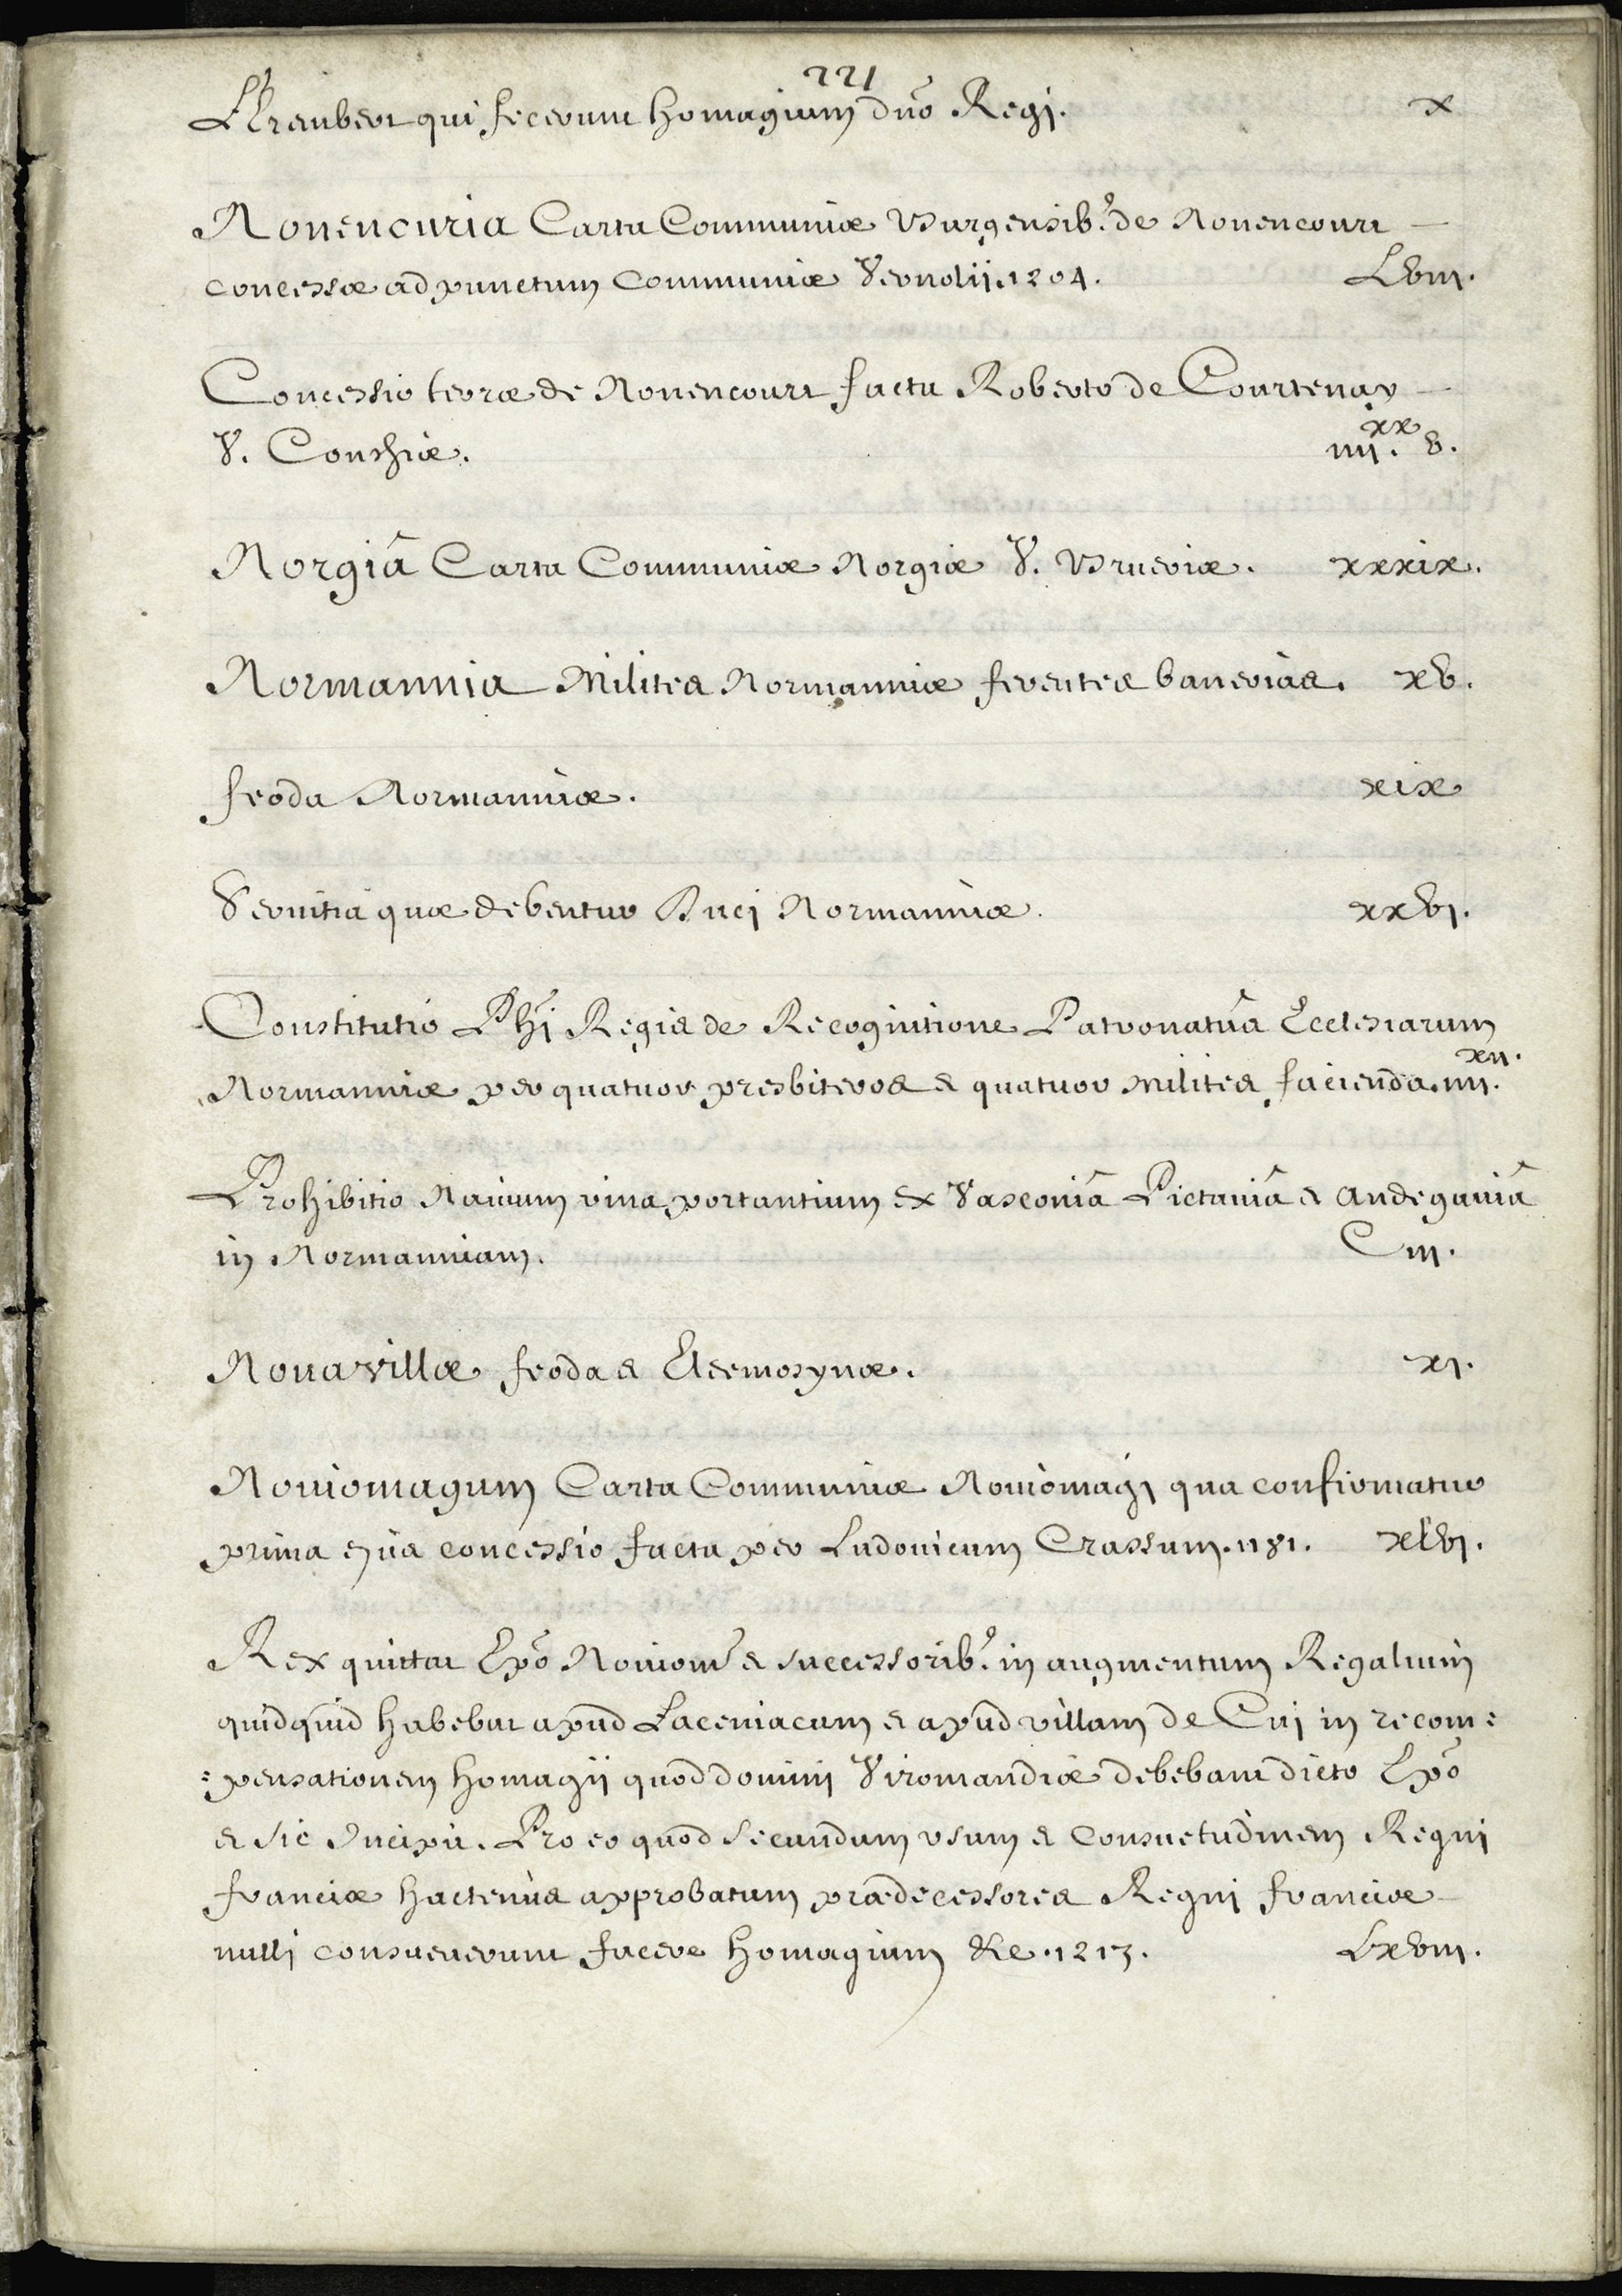 221
qui fecerunt homagium dño Regi. x
Nonencuria Carta Communiæ Burgensib9 de Nonencourt
concessæ ad punctum Communiæ Vernolii. 1204. Lviii.
Concessio terræ de Nonencourt facta Roberto de Courtenay
V. Conchiæ. iiii. xx v.
Norgiâ Carta Communiæ Norgiæ V. Brueriæ. xxxix.
Normannia Milites Normanniæ ferentes banerias. xv.
feoda Normanniæ. xix
Servitia quæ debentur Duci Normanniæ. xxvi.
Constitutio Phĩ Regis de Recognitione Patronatûs Ecclesiarum
Normanniæ per quatuor presbiteros & quatuor milites facienda. iiii. xii.
Prohibitio Nauium vina portantium ex Vasconiâ Pictauiâ & Andegauiâ
in Normanniam. Ciii.
Nouavillæ feoda & Eleemosynæ. xi.
Nouiomagum Carta Communiæ Nouiomagi qua confirmatur
prima eius concessio facta per Ludouicum Crassum. 1181. xlvi.
Rex quittat Ep̃o Nouiom̃ & successorib9 in augmentum Regalium
quidquid habebat apud Laceniacum & apud villam de Cui in recom:
:pensationem homagii quod domini Viromandiæ debebant dicto Ep̃o
& sic Incipit. Pro eo quod secundum vsum & consuetudinem Regni
franciæ hactenùs approbatum prædecessores Regni franciæ
nulli consueuerunt facere homagium &c. 1213. Lxviii.